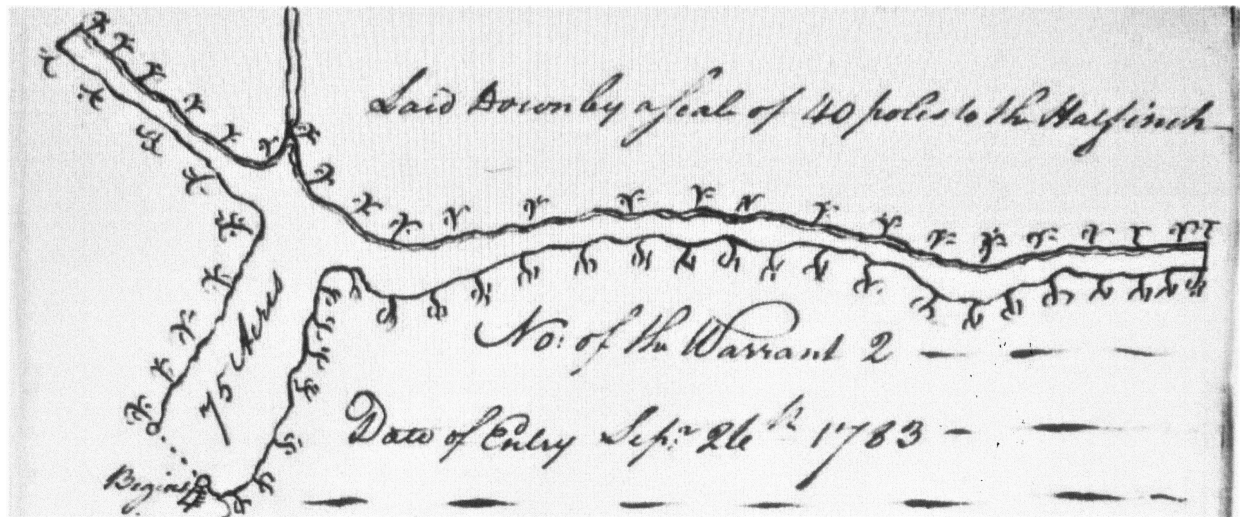 Laid Down by a Scale of 40 poles to the Half inch
75 Acres
No: of the Warrant 2
Date of Entry Sepr. 26th 1783
Begins